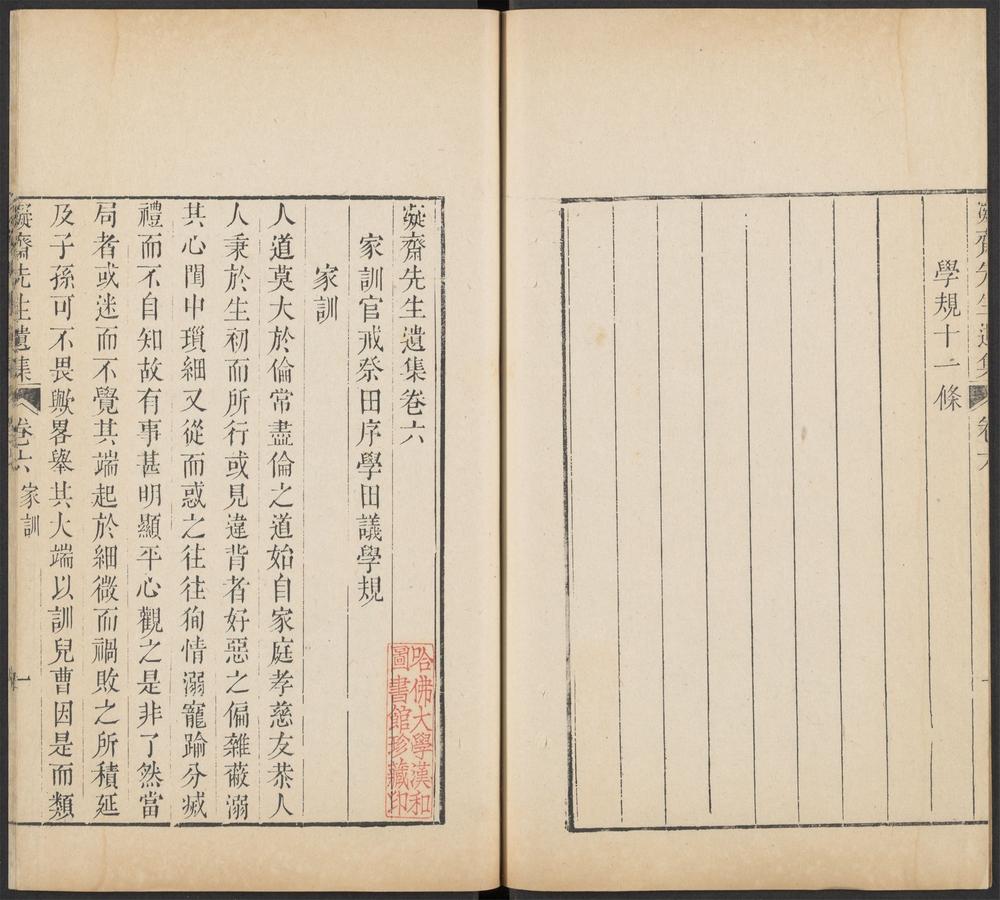 凝齋先生遺集 卷六
學規十一條
凝齋先生遺集卷六
家訓官戒祭田序學田議學規
家訓
人道莫大於倫常盡倫之道始自家庭孝慈友恭人
人秉於生初而所行或見違背者好惡之偏雜蔽溺
其心閨中瑣細又從而惑之往往狥情溺寵踰分烕
禮而不自知故有事甚明顯平心觀之是非了然當
局者或迷而不覺其端起於細微而禍敗之所積延
及子孫可不畏歟畧舉其大端以訓兒曹因是而類
凝齋先生遺集 卷六 家訓 一
哈佛大學漢和
圖書館珍藏印